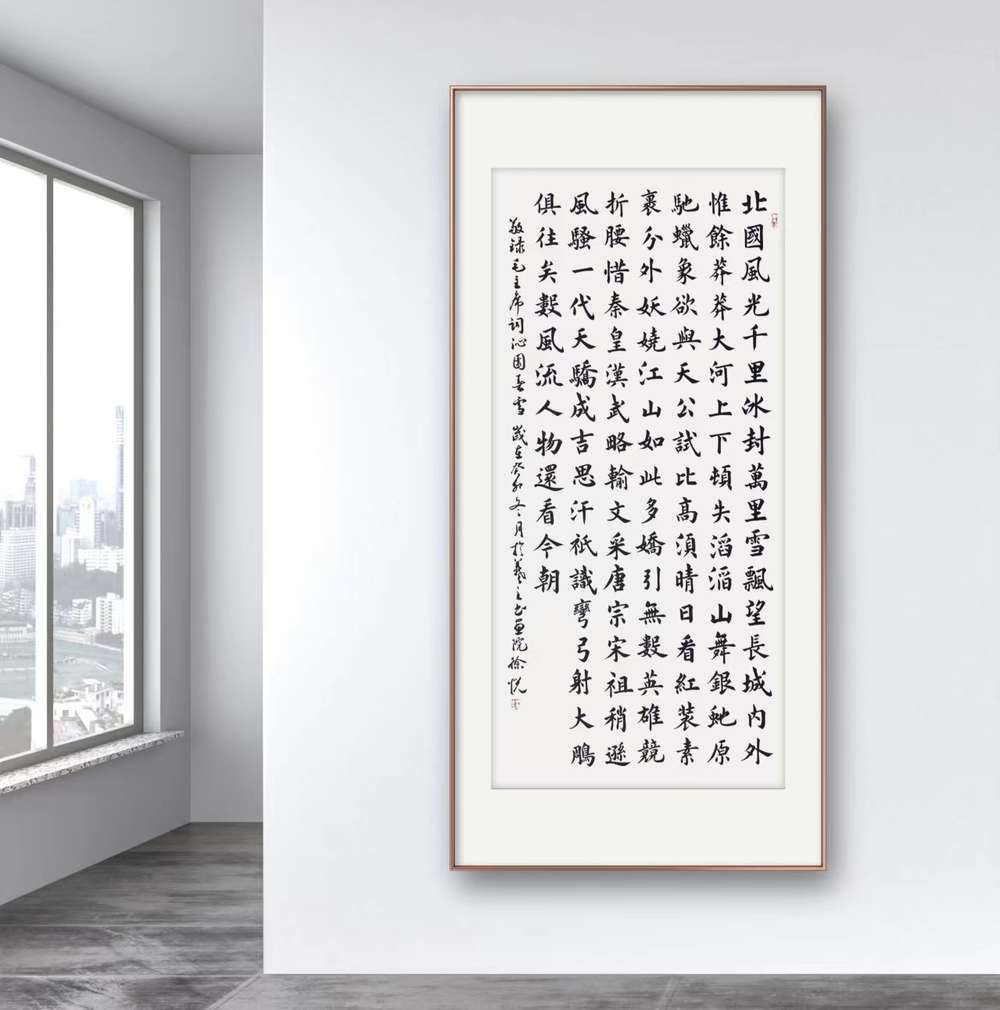 北國風光千里冰封萬里雪飄望長城内外
惟餘莽莽大河上下頓失滔滔山舞銀虵原
馳蠟象欲與天公試比高須晴日看紅装素
裹分外妖嬈江山如此多嬌引無數英雄競
折腰惜秦皇漢武略輸文采唐宗宋祖稍遜
風騷一代天驕成吉思汗祇識彎弓射大鵰
俱往矣數風流人物還看今朝
敬録毛主席詞沁園春雪 歲在癸卯冬月於羲之書畫院徐悦